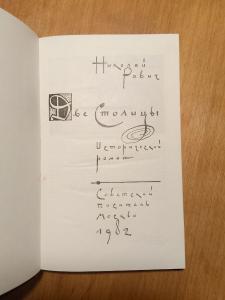 Николай
Рович
Две Столицы
Исторический
роман
Советский
писатель
Москва
1982